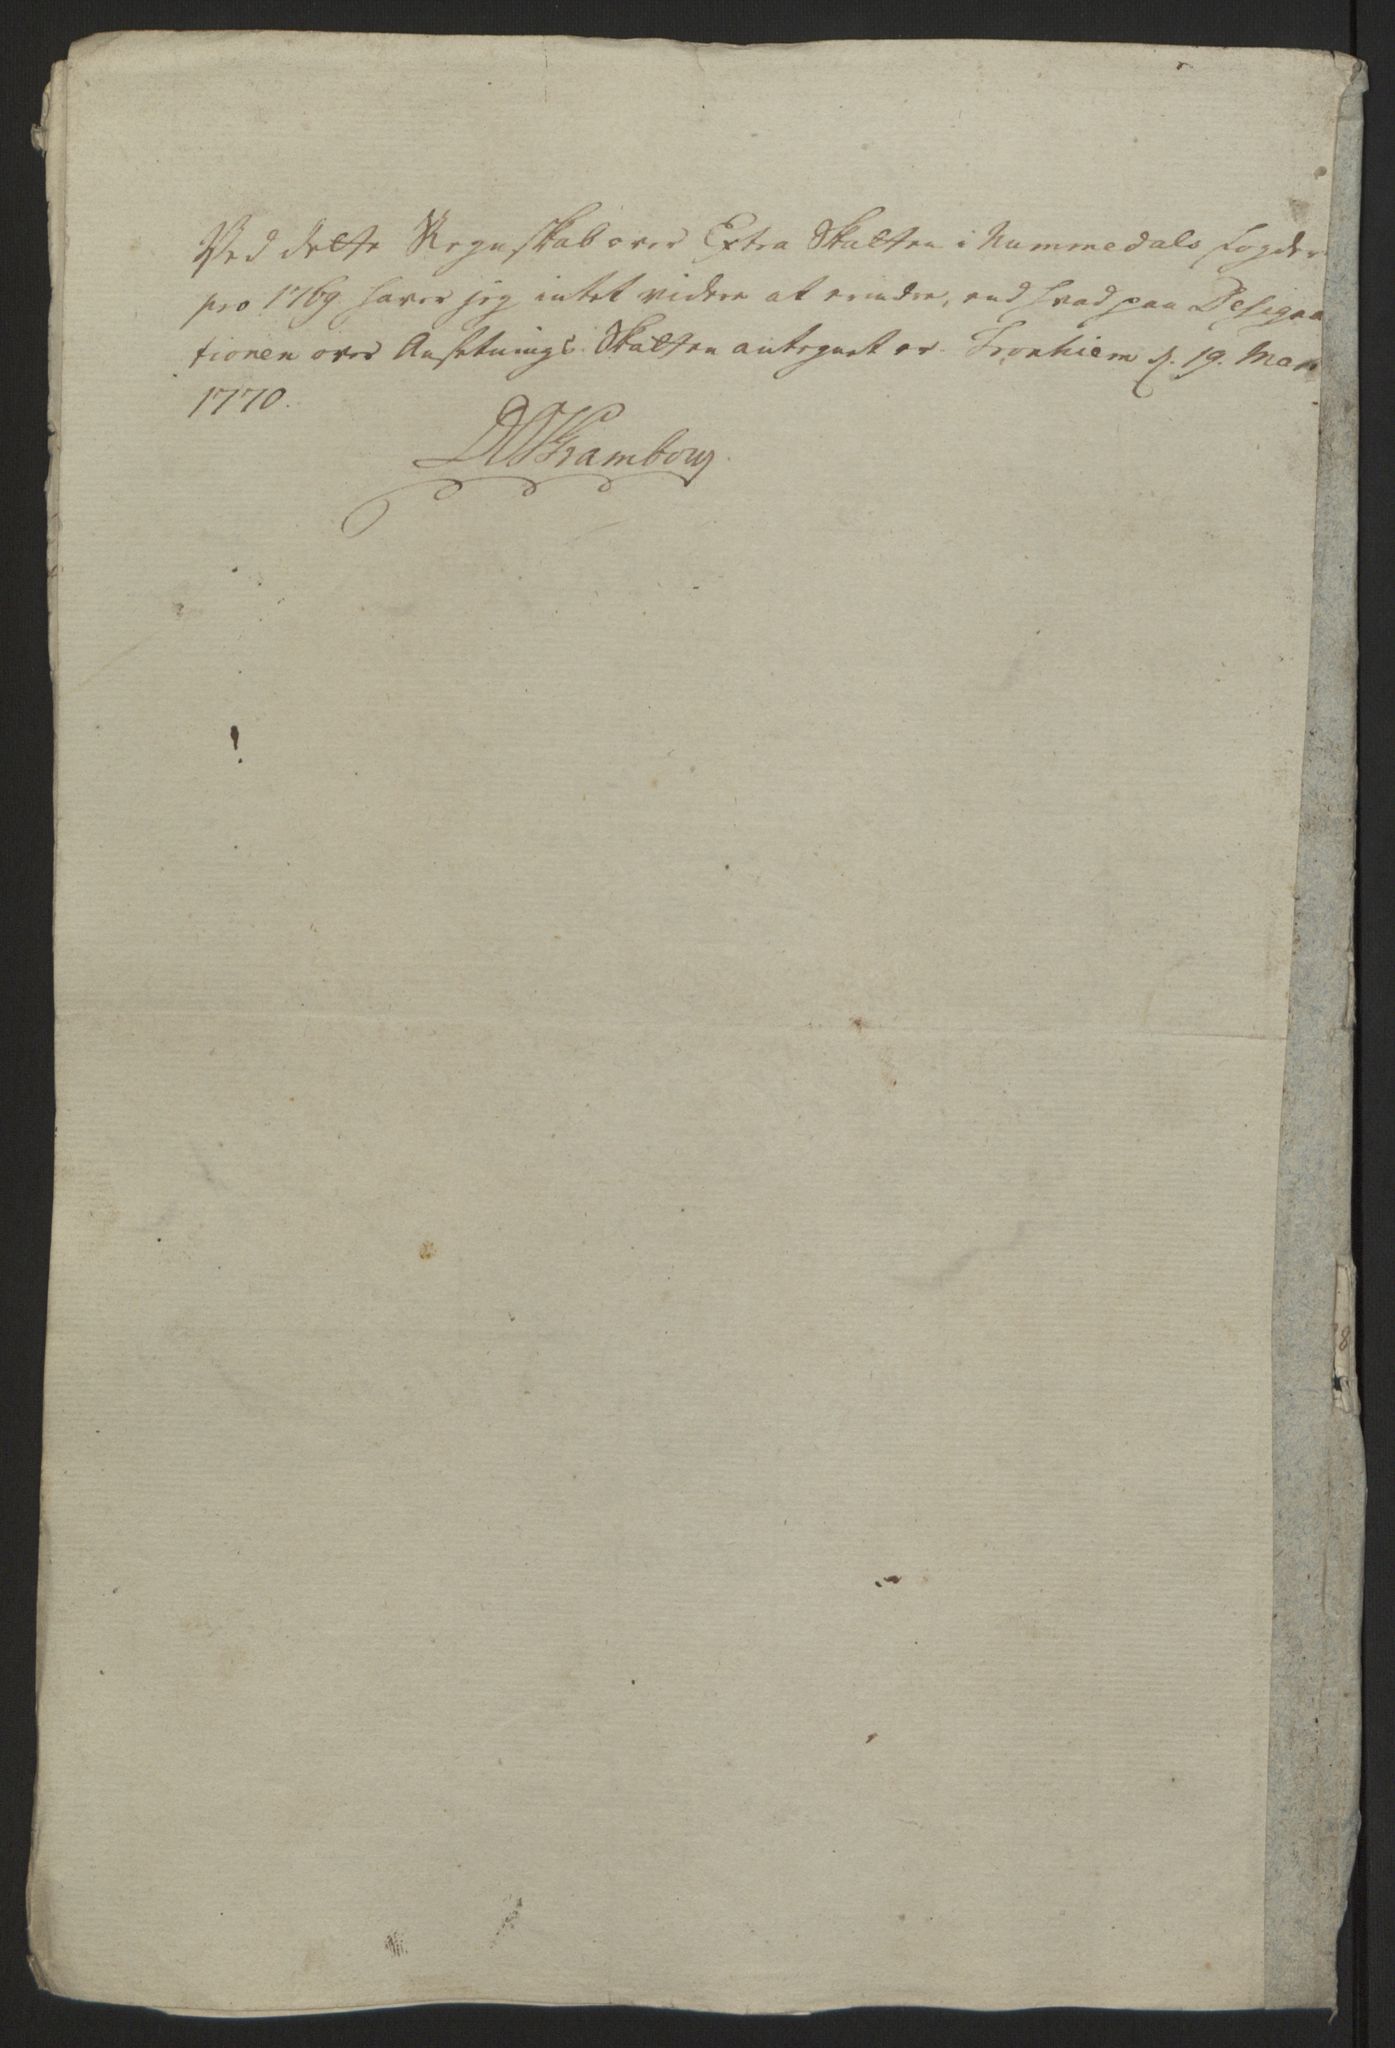 Ved dette Regnskab over Extra Skatten i Nummedals Fogder
pro 1769 haver jeg intet videre at erindre, end hvad paa Designa
tionen over Ansetnings Skatten antegnet er. Tronhiem d. 19. Mar
1770.